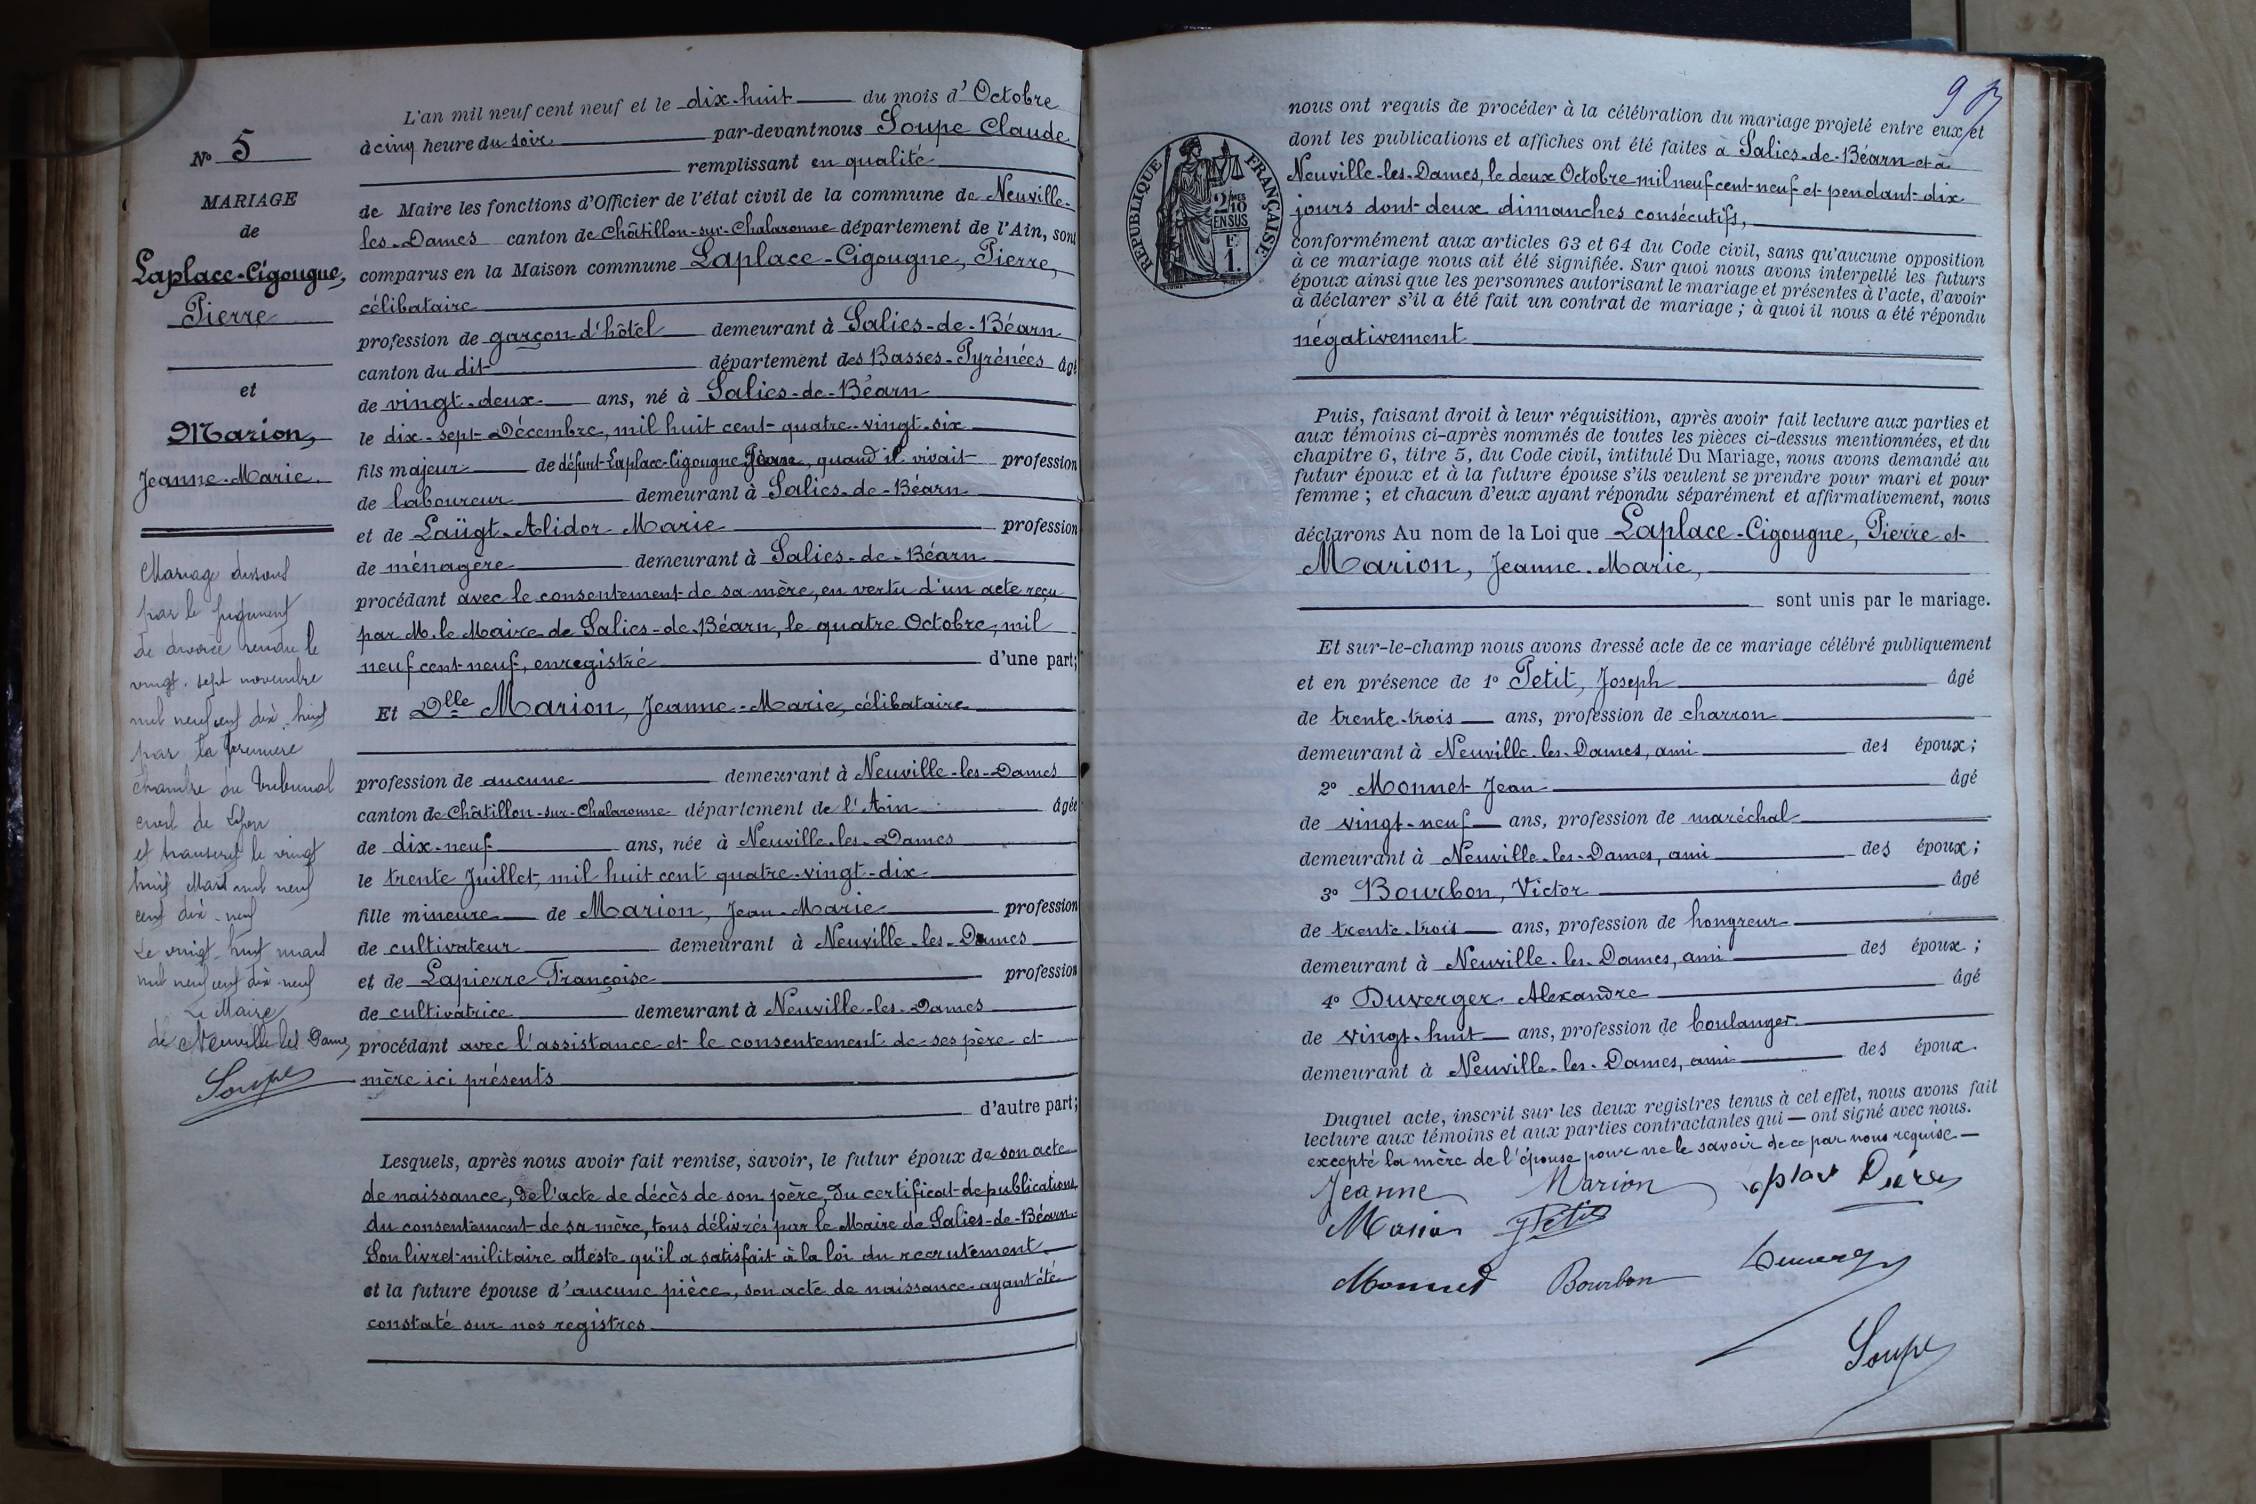 N° 5
MARIAGE
de
Laplace-Cigougne,
Pierre
et
Marion,
Jeanne-Marie.
Mariage dissous
par le jugement
de divorce rendu le
vingt-sept novembre
mil neuf cent dix-huit
par la première
chambre du tribunal
civil de Lyon
et transcrit le vingt
huit Mars mil neuf
cent dix-neuf
Le vingt-huit mars
mil neuf cent dix-neuf
Le Maire
de Neuville les Dames
Soupe
L'an mil neuf cent neuf et le dix-huit du mois d'Octobre
à cinq heure du soir par-devant nous Soupe Claude
remplissant en qualité
de Maire les fonctions d'Officier de l'état civil de la commune de Neuville-
les-Dames canton de Châtillon-sur-Chalaronne département de l'Ain, sont
comparus en la Maison commune Laplace-Cigougne, Pierre,
célibataire
profession de garçon d'hôtel demeurant à Salies-de-Béarn
canton du dit département des Basses-Pyrénées âgé
de vingt-deux ans, né à Salies-de-Béarn
le dix-sept Décembre, mil huit cent quatre-vingt-six
fils majeur de défunt Laplace-Cigougne Pierre, quand il vivait profession
de laboureur demeurant à Salies-de-Béarn
et de Laügt-Alidor Marie profession
de ménagère demeurant à Salies-de-Béarn
procédant avec le consentement de sa mère, en vertu d'un acte reçu
par M. le Maire de Salies-de-Béarn, le quatre Octobre, mil
neuf cent neuf, enregistré d'une part;
Et Dlle Marion, Jeanne-Marie, célibataire
profession de aucune demeurant à Neuville-les-Dames
canton de Châtillon-sur-Chalaronne département de l'Ain âgée
de dix-neuf ans, née à Neuville-les-Dames
le trente Juillet, mil huit cent quatre-vingt-dix
fille mineure de Marion, Jean-Marie profession
de cultivateur demeurant à Neuville-les-Dames
et de Lapierre Françoise profession
de cultivatrice demeurant à Neuville-les-Dames
procédant avec l'assistance et le consentement de ses père et
mère ici présents
d'autre part;
Lesquels, après nous avoir fait remise, savoir, le futur époux de son acte
de naissance, de l'acte de décès de son père, du certificat de publications
du consentement de sa mère, tous délivrés par le Maire de Salies-de-Béarn.
Son livret militaire atteste qu'il a satisfait à la loi du recrutement
et la future épouse d'aucune pièce, son acte de naissance ayant été
constaté sur nos registres
RÉPUBLIQUE FRANÇAISE
2/10 MES
EN SUS
F
1.
nous ont requis de procéder à la célébration du mariage projeté entre eux et
dont les publications et affiches ont été faites à Salies-de-Béarn et à
Neuville-les-Dames, le deux Octobre mil neuf cent neuf et pendant dix
jours dont deux dimanches consécutifs,
conformément aux articles 63 et 64 du Code civil, sans qu'aucune opposition
à ce mariage nous ait été signifiée. Sur quoi nous avons interpellé les futurs
époux ainsi que les personnes autorisant le mariage et présentes à l'acte, d'avoir
à déclarer s'il a été fait un contrat de mariage ; à quoi il nous a été répondu
négativement
Puis, faisant droit à leur réquisition, après avoir fait lecture aux parties et
aux témoins ci-après nommés de toutes les pièces ci-dessus mentionnées, et du
chapitre 6, titre 5, du Code civil, intitulé Du Mariage, nous avons demandé au
futur époux et à la future épouse s'ils veulent se prendre pour mari et pour
femme ; et chacun d'eux ayant répondu séparément et affirmativement, nous
déclarons Au nom de la Loi que Laplace-Cigougne, Pierre et
Marion, Jeanne-Marie,
sont unis par le mariage.
Et sur-le-champ nous avons dressé acte de ce mariage célébré publiquement
et en présence de 1° Petit, Joseph âgé
de trente-trois ans, profession de charron
demeurant à Neuville-les-Dames, ami des époux;
2° Monnet Jean âgé
de vingt-neuf ans, profession de maréchal
demeurant à Neuville-les-Dames, ami des époux;
3° Bourbon, Victor âgé
de trente-trois ans, profession de hongreur
demeurant à Neuville-les-Dames, ami des époux ;
4° Duverger Alexandre âgé
de vingt-huit ans, profession de boulanger
demeurant à Neuville-les-Dames, ami des époux.
Duquel acte, inscrit sur les deux registres tenus à cet effet, nous avons fait
lecture aux témoins et aux parties contractantes qui — ont signé avec nous.
excepté la mère de l'épouse pour ne le savoir de ce par nous requise —
Jeanne Marion Pierre
Marion JPetit
Monnet Bourbon
Soupe